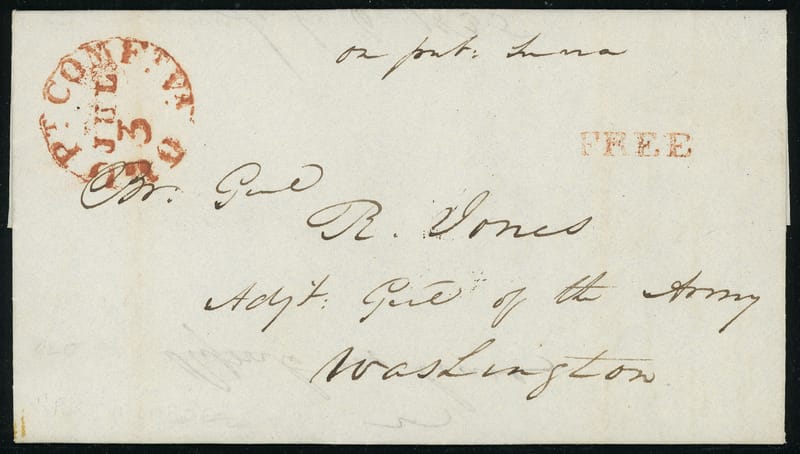 on pub: Serva
PT. COMFT. Va.
JUL
3
FREE
Br. Genl
R. Jones
Adjt: Genl of the Army
Washington